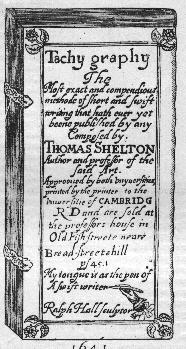 Tachy graphy
The
Most exact and compendious
methode of short and swift
writing that hath ever yet
beene published by any
Composed by
THOMAS SHELTON
Author and professor of the
said Art.
Approoved by both Unyuersities
printed by the printer to the
CAMBRIDG
R D and are sold at
the professors house in
Old Fish streete neare
Bread streete hill
My tongue is as the pen of
A swift writer
Ralph Hall sculptor
1641